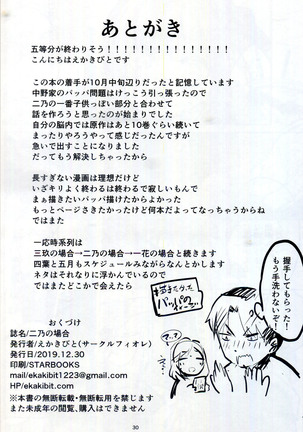 あとがき
五等分が終わりそう!!!!!!!!!!!!!!!
こんにちはえかきびとです
この本の着手が10月中旬辺りだったと記憶しています
中野家のパッパ問題はけっこう引っ張ったので
二乃の一番子供っぽい部分と合わせて
話を作ろうと思ったのが始まりでした
自分の脳内では原作はあと10巻ぐらい続いて
まったりやろうやって感じだったんですが
急いで出すことになりました
だってもう解決しちゃったから
長すぎない漫画は理想だけど
いざキリよく終わるは終わるで寂しいもんで
まぁ描きたいパッパ描けたからよかった
もっとページさきたかったけど何本だよってなっちゃうからね
ではまた
一応時系列は
三玖の場合→二乃の場合→一花の場合と続きます
四葉と五月もスケジュールみながらなんとかします
ネタはそれなりに浮かんでいるので
ではまたどこかで会えたら
握手してもらった!
もう手洗わないぞ!
おくづけ
誌名/二乃の場合
発行者/えかきびと(サークルフィオレ)
発行日/2019.12.30
印刷/STARBOOKS
mail/ekakibit1223@gmail.com
HP/ekakibit.com
※本書の無断転載・無断使用を禁じます
また未成年の閲覧、購入はできません
30